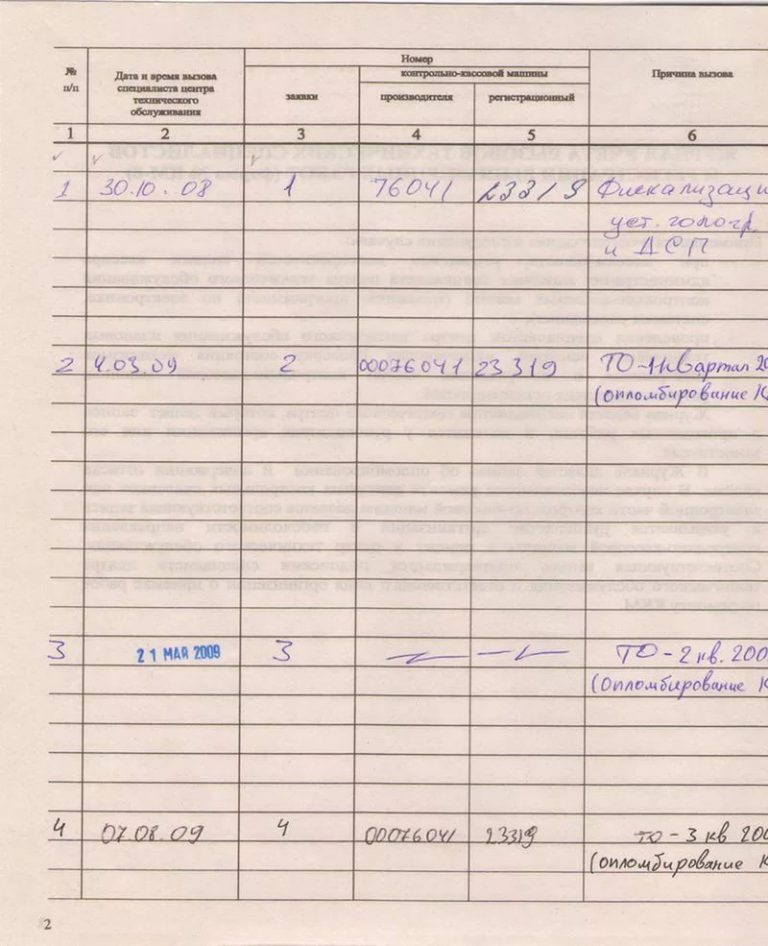 № п/п
Дата и время вызова специалиста центра технического обслуживания
Номер
заявки
контрольно-кассовой машины
производителя
регистрационный
Причина вызова
1 2 3 4 5 6
1 30.10.08 1 76041 23319 Фискализаци
уст. гологр.
и ДСП
2 4.03.09 2 00076041 23319 ТО-1 квартал 20
(опломбирование К
3 21 МАЯ 2009 3 ТО-2 кв. 200
(опломбирование К
4 07.08.09 4 00076041 23319 ТО-3 кв 200
(опломбирование К
2